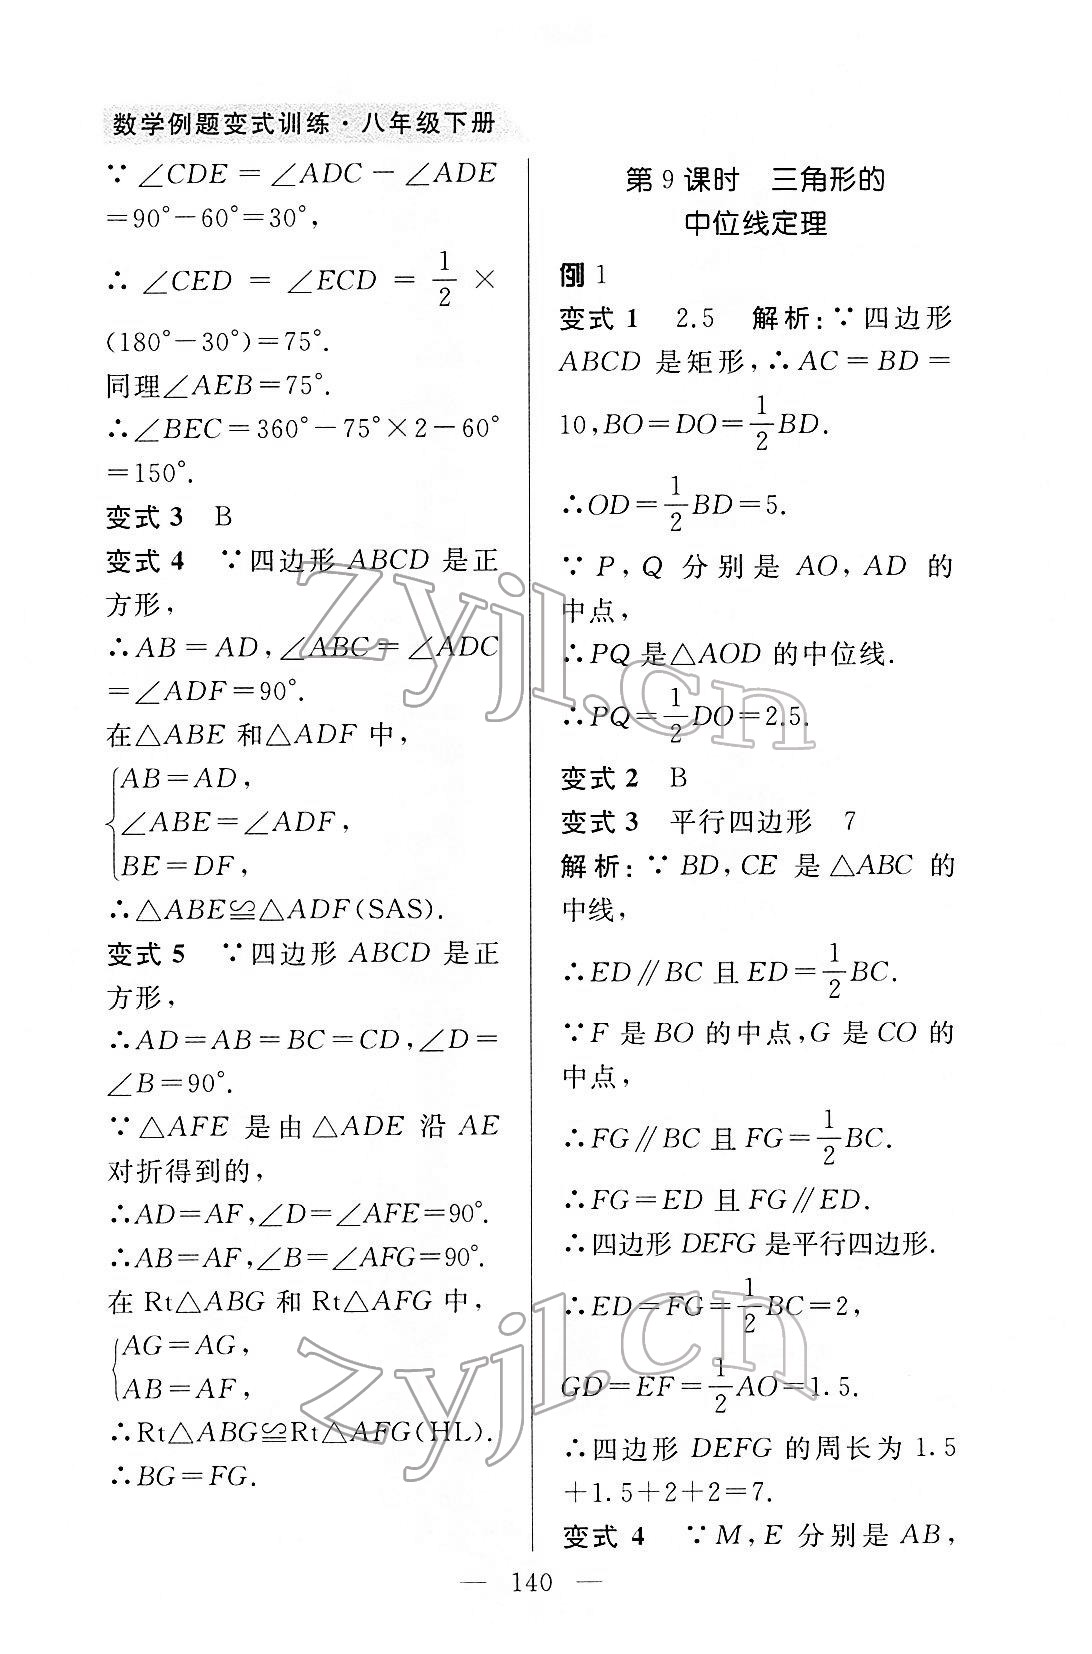 数学例题变式训练·八年级下册
∵∠CDE=∠ADC-∠ADE
=90°-60°=30°,
∴∠CED=∠ECD=1/2×
(180°-30°)=75°.
同理∠AEB=75°.
∴∠BEC=360°-75°×2-60°
=150°.
变式3 B
变式4 ∵四边形ABCD是正
方形,
∴AB=AD,∠ABC=∠ADC
=∠ADF=90°.
在△ABE和△ADF中,
AB=AD,
∠ABE=∠ADF,
BE=DF,
∴△ABE≌△ADF(SAS).
变式5 ∵四边形ABCD是正
方形,
∴AD=AB=BC=CD,∠D=
∠B=90°.
∵△AFE是由△ADE沿AE
对折得到的,
∴AD=AF,∠D=∠AFE=90°.
∴AB=AF,∠B=∠AFG=90°.
在Rt△ABG和Rt△AFG中,
AG=AG,
AB=AF,
∴Rt△ABG≌Rt△AFG(HL).
∴BG=FG.
第9课时 三角形的
中位线定理
例1
变式1 2.5 解析:∵四边形
ABCD是矩形,∴AC=BD=
10,BO=DO=1/2BD.
∴OD=1/2BD=5.
∵P,Q分别是AO,AD的
中点,
∴PQ是△AOD的中位线.
∴PQ=1/2DO=2.5.
变式2 B
变式3 平行四边形 7
解析:∵BD,CE是△ABC的
中线,
∴ED∥BC且ED=1/2BC.
∵F是BO的中点,G是CO的
中点,
∴FG∥BC且FG=1/2BC.
∴FG=ED且FG∥ED.
∴四边形DEFG是平行四边形.
∴ED=FG=1/2BC=2,
GD=EF=1/2AO=1.5.
∴四边形DEFG的周长为1.5
+1.5+2+2=7.
变式4 ∵M,E分别是AB,
— 140 —
zyjl.cn
zyjl.cn